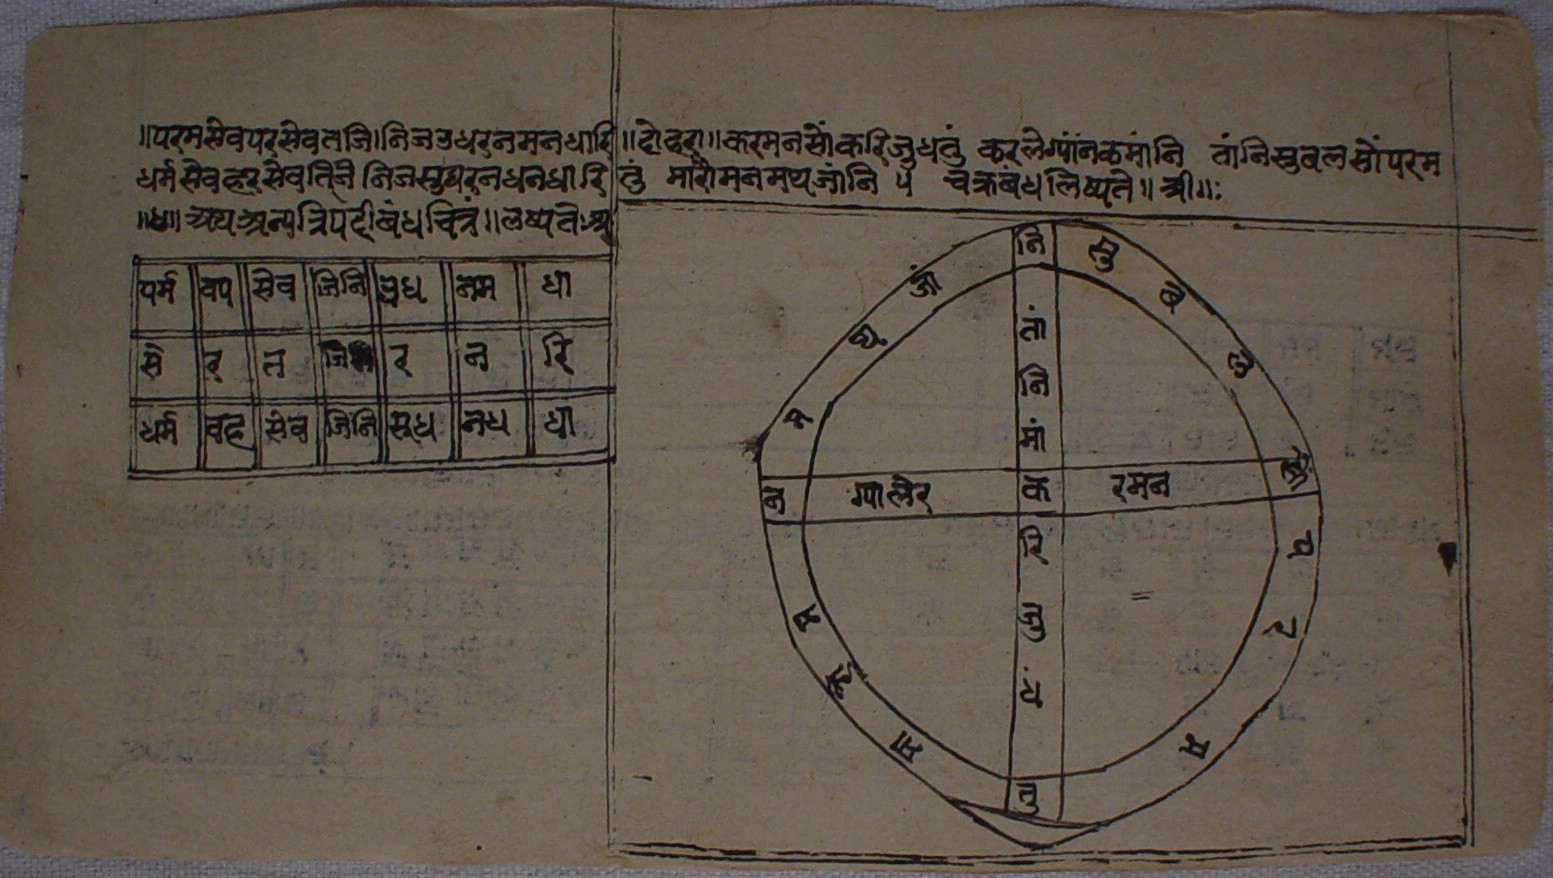 ॥परमसेवपरसेवतजि।निजउधरनमनधारि
धर्मसेवहरसेवतिनै निजसुधरनधनधारि
अथअन्यत्रिपदीबंधचित्रं॥लष्यते
पर्म वप सेव जिनि उध नम धा
से र त जि र न रि
धर्म वह सेव जिनि सुध नध धा
॥दोहरा॥करमनसौंकरिजुधतुं करलेग्यांनकमांनि तांनिसुबलसौंपरम
तुं मारौमनमथजांनि ५ चक्रबंधलिष्यते॥श्री॥
नि सु ब ल सौं प र म तु
मा रौ म न म थ जां
तां नि मां
न ग्यालेर क रमन
रि जु ध